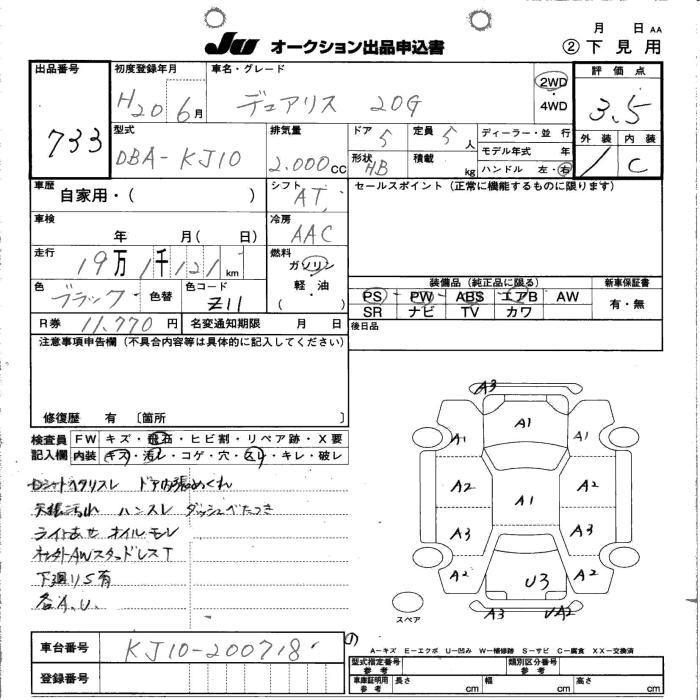 月 日 AA
JU オークション出品申込書 ②下見用
出品番号 初度登録年月 車名・グレード 2WD・4WD 評価点
733 H20 6月 デュアリス 20G 3.5
型式 排気量 ドア 定員 ディーラー・並 行 外装 内装
DBA-KJ10 2.000cc 5 5人 モデル年式 年 / C
形状 積載 ハンドル 左・右
HB kg
車歴 シフト セールスポイント(正常に機能するものに限ります)
自家用・( ) AT
車検 冷房
年 月( 日) AAC
走行 燃料
19万1千121km ガソリン・軽油・( )
色 色替 色コード 装備品(純正品に限る) 新車保証書
ブラック Z11 PS PW ABS エアB AW 有・無
SR ナビ TV カワ
R券 11,770円 名変通知期限 月 日 後日品
注意事項申告欄(不具合内容等は具体的に記入してください)
修復歴 有 〔箇所 〕
検査員 FW キズ・飛石・ヒビ割・リペア跡・X要
記入欄 内装 キズ・汚レ・コゲ・穴・スレ・キレ・破レ
ドア内張めくれ
天張汚れ ハンスレ ダッシュべたつき
ライトあせ オイルモレ
AWスタッドレスT
下廻りS有
各A.U.
A3
A1
A1 A1
A2 A1 A2
A3 A3
A2 U3 A2
A3 UA2
スペア
車台番号 KJ10-200718
登録番号
A-キズ E-エクボ U-凹み W-補修跡 S-サビ C-腐食 XX-交換済
型式指定番号 参考 類別区分番号 参考
車庫証明用 参考 長さ cm 幅 cm 高さ cm